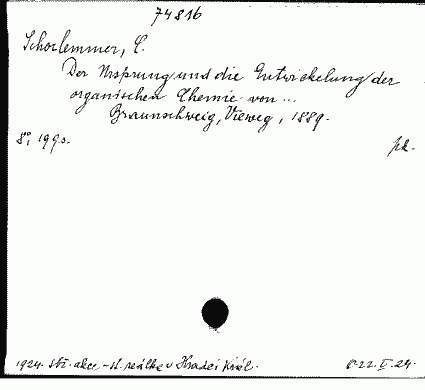 74816
Schorlemmer, C.
Der Ursprung und die Entwickelung der
organischen Chemie von ...
Braunschweig, Vieweg, 1889.
8°, 199 s.
1924. stř. akce - st. reálka v Hradci Král.
22. V. 24.